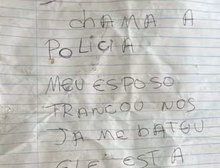 CHAMA A
POLICIA
MEU ESPOSO
TRANCOU NOS
JA ME BATEU
ELE ESTA